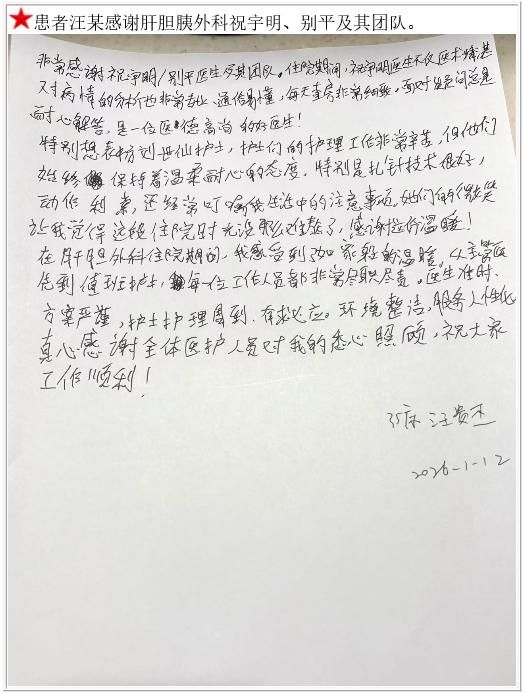 患者汪某感谢肝胆胰外科祝宇明、别平及其团队。
非常感谢祝宇明/别平医生及其团队。住院期间,祝宇明医生不仅医术精湛
对病情的分析也非常专业、通俗易懂,每天查房非常细致,面对疑问总是
耐心解答,是一位医德高尚的好医生!
特别想表扬刘世仙护士,护士们的护理工作非常辛苦,但他们
始终保持着温柔耐心的态度。特别是扎针技术很好,
动作利索,还经常叮嘱我生活中的注意事项。她们的微笑
让我觉得这段住院时光没那么难熬了,感谢这份温暖!
在肝胆外科住院期间,我感受到如家般的温暖。从主管医
生到值班护士,每一位工作人员都非常尽职尽责。医生准时、
方案严谨,护士护理周到、有求必应。环境整洁,服务人性化
真心感谢全体医护人员对我的悉心照顾,祝大家
工作顺利!
35床 汪贵杰
2026-1-12